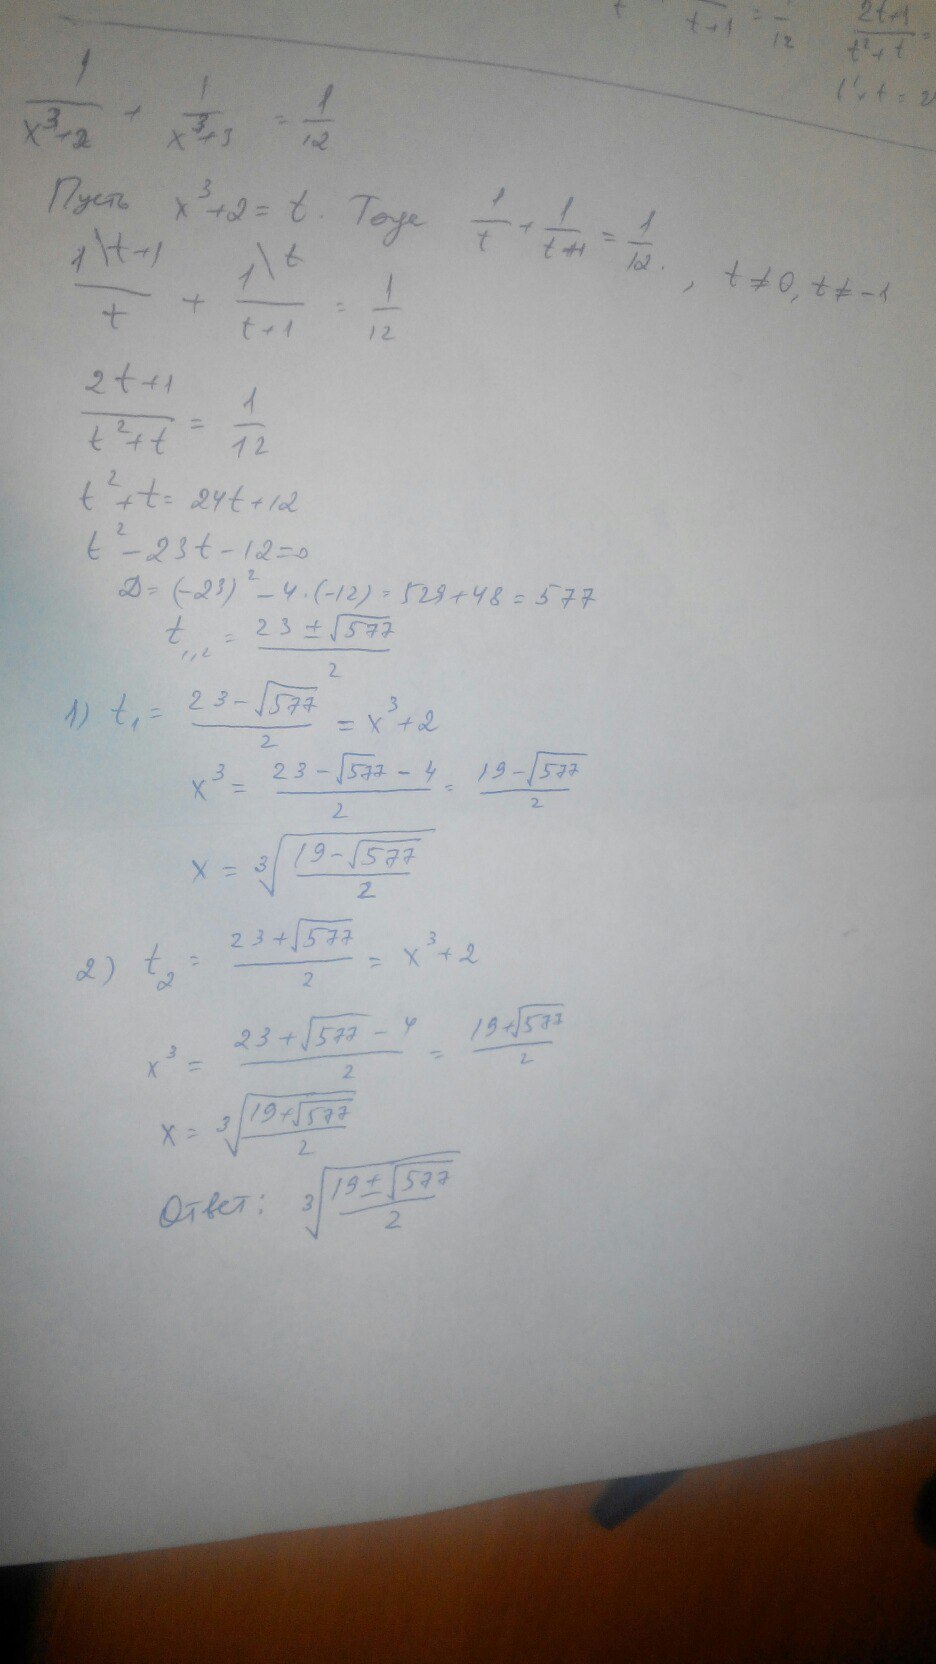 t t+1 = 1/12 (2t+1)/(t²+t) =
1/(x³+2) + 1/(x³+3) = 1/12
Пусть x³+2 = t. Тогда 1/t + 1/(t+1) = 1/12, t ≠ 0, t ≠ -1
1\t+1/t + 1\t/(t+1) = 1/12
(2t+1)/(t²+t) = 1/12
t²+t = 24t+12
t² - 23t - 12 = 0
D = (-23)² - 4·(-12) = 529+48 = 577
t₁,₂ = (23 ± √577)/2
1) t₁ = (23 - √577)/2 = x³+2
x³ = (23 - √577 - 4)/2 = (19 - √577)/2
x = ∛((19 - √577)/2)
2) t₂ = (23 + √577)/2 = x³+2
x³ = (23 + √577 - 4)/2 = (19 + √577)/2
x = ∛((19 + √577)/2)
Ответ: ∛((19 ± √577)/2)